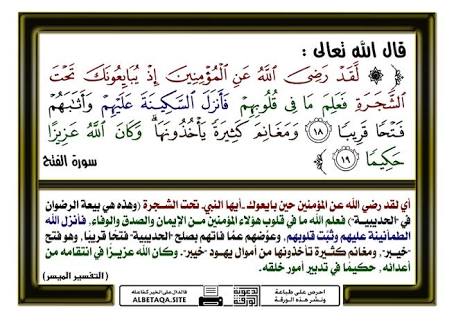 قال الله تعالى :
﴿ ۞ لَّقَدْ رَضِيَ ٱللَّهُ عَنِ ٱلْمُؤْمِنِينَ إِذْ يُبَايِعُونَكَ تَحْتَ
ٱلشَّجَرَةِ فَعَلِمَ مَا فِي قُلُوبِهِمْ فَأَنزَلَ ٱلسَّكِينَةَ عَلَيْهِمْ وَأَثَٰبَهُمْ
فَتْحًا قَرِيبًا ١٨ وَمَغَانِمَ كَثِيرَةً يَأْخُذُونَهَاۗ وَكَانَ ٱللَّهُ عَزِيزًا
حَكِيمًا ١٩ ﴾ سورة الفتح
أي لقد رضي الله عن المؤمنين حين بايعوك، أيها النبي، تحت الشجرة (وهذه هي بيعة الرضوان
في «الحديبية») فعلم الله ما في قلوب هؤلاء المؤمنين من الإيمان والصدق والوفاء، فأنزل الله
الطمأنينة عليهم وثبَّت قلوبهم، وعوَّضهم عمَّا فاتهم بصلح «الحديبية» فتحًا قريبًا، وهو فتح
«خيبر»، ومغانم كثيرة تأخذونها من أموال يهود «خيبر». وكان الله عزيزًا في انتقامه من
أعدائه، حكيمًا في تدبير أمور خلقه.
(التفسير الميسر)
احرص على طباعة
ونشر هذه الورقة
لدعوية
الورقة
فالدال على الخير كفاعله
ALBETAQA.SITE